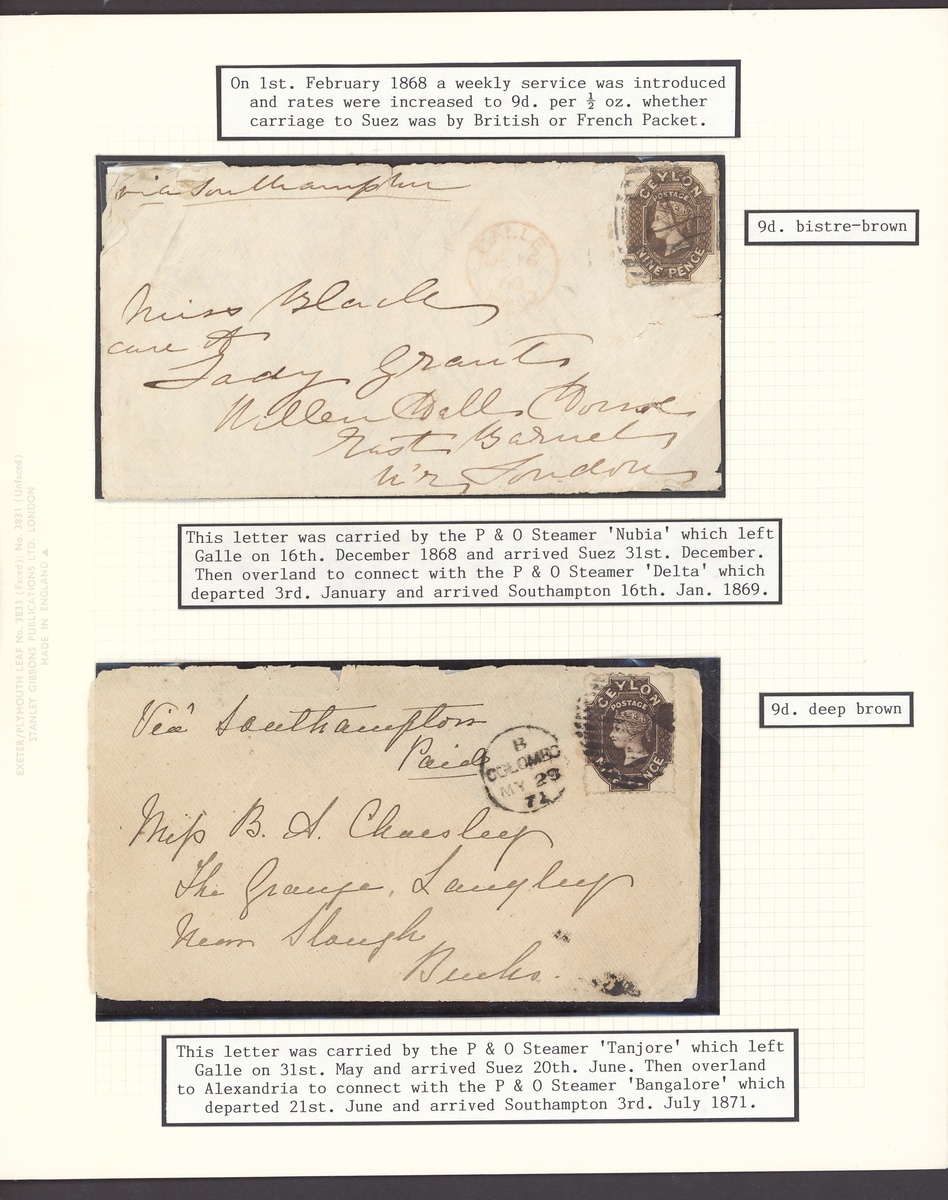 On 1st. February 1868 a weekly service was introduced
and rates were increased to 9d. per ½ oz. whether
carriage to Suez was by British or French Packet.
via Southampton
CEYLON
POSTAGE
NINE PENCE
9d. bistre-brown
GALLE
Miss Black
care of
Lady Grant
Willen Hall House
East Barnet
N'r London
This letter was carried by the P & O Steamer 'Nubia' which left
Galle on 16th. December 1868 and arrived Suez 31st. December.
Then overland to connect with the P & O Steamer 'Delta' which
departed 3rd. January and arrived Southampton 16th. Jan. 1869.
EXETER/PLYMOUTH LEAF No. 3833 (Faced): No. 3831 (Unfaced)
STANLEY GIBBONS PUBLICATIONS LTD. LONDON
MADE IN ENGLAND
Viâ Southampton
Paid
B
COLOMBO
MY 29
71
CEYLON
POSTAGE
NINE PENCE
9d. deep brown
Miss B. A. Chorsley
The Grange, Langley
Near Slough
Bucks.
This letter was carried by the P & O Steamer 'Tanjore' which left
Galle on 31st. May and arrived Suez 20th. June. Then overland
to Alexandria to connect with the P & O Steamer 'Bangalore' which
departed 21st. June and arrived Southampton 3rd. July 1871.